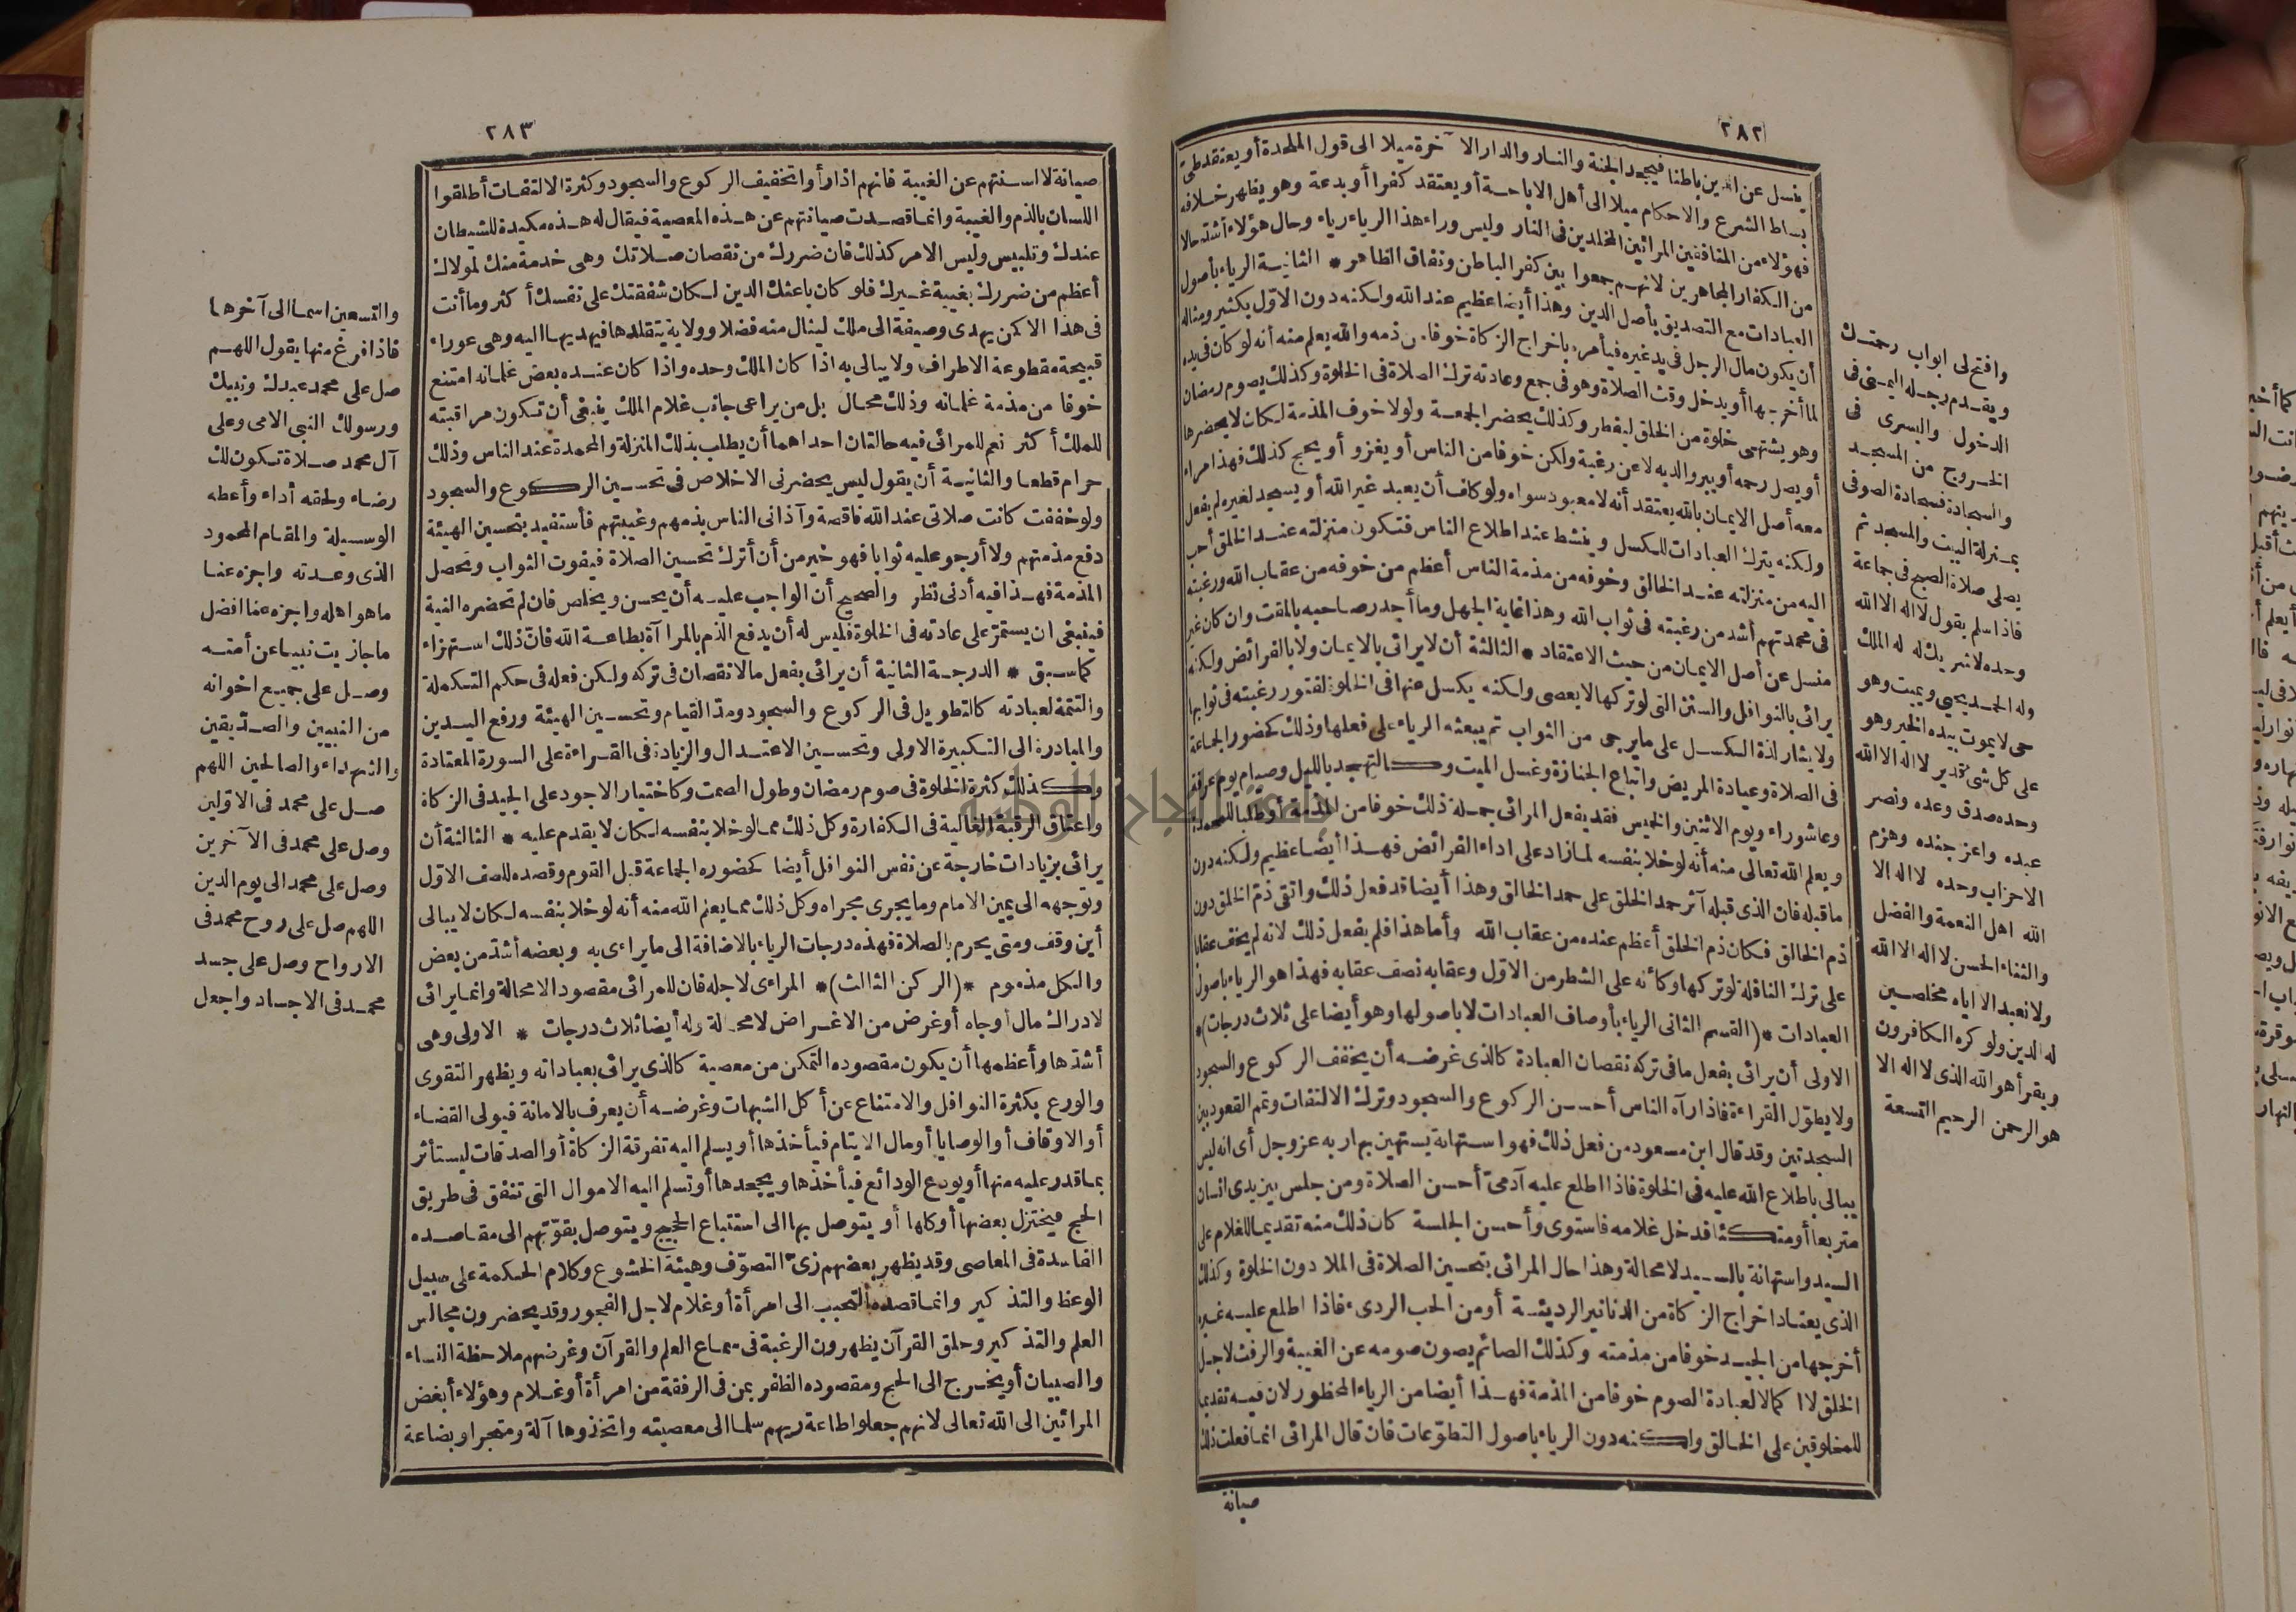 ٢٨٢
ينسل عن الدين باطنا فيجحد الجنة والنار والدار الآخرة ميلا الى قول الملحدة أو يعتقد طى
بساط الشرع والاحكام ميلا الى أهل الاباحة أو يعتقد كفرا أو بدعة وهو يظهر خلافه
فهؤلاء من المنافقين المرائين المخلدين فى النار وليس وراء هذا الرياء رياء وحال هؤلاء أشد حالا
من الكفار المجاهرين لانهم جمعوا بين كفر الباطن ونفاق الظاهر * الثانية الرياء بأصول
العبادات مع التصديق بأصل الدين وهذا أيضا عظيم عند الله ولكنه دون الاول بكثير ومثاله
أن يكون مال الرجل فى يد غيره فيأمره باخراج الزكاة خوفا من ذمه والله يعلم منه أنه لو كان فى يده
لما أخرجها أو يدخل وقت الصلاة وهو فى جمع وعادته ترك الصلاة فى الخلوة وكذلك يصوم رمضان
وهو يشتهى خلوة من الخلق ليفطر وكذلك يحضر الجمعة ولولا خوف المذمة لكان لا يحضرها
أو يصل رحمه أو يبر والديه لا عن رغبة ولكن خوفا من الناس أو يغزو أو يحج كذلك فهذا مراء
معه أصل الايمان بالله يعتقد أنه لا معبود سواه ولو كلف أن يعبد غير الله أو يسجد لغيره لم يفعل
ولكنه يترك العبادات للكسل وينشط عند اطلاع الناس فتكون منزلته عند الخلق أحب
اليه من منزلته عند الخالق وخوفه من مذمة الناس أعظم من خوفه من عقاب الله ورغبته
فى محمدتهم أشد من رغبته فى ثواب الله وهذا غاية الجهل وما أجدر صاحبه بالمقت وان كان غير
منسل عن أصل الايمان من حيث الاعتقاد * الثالثة أن لا يرائى بالايمان ولا بالفرائض ولكنه
يرائى بالنوافل والسنن التى لو تركها لا يعصى ولكنه يكسل عنها فى الخلوة لفتور رغبته فى ثوابها
ولايثار لذة الكسل على ما يرجى من الثواب ثم يبعثه الرياء على فعلها وذلك كحضور الجماعة
فى الصلاة وعيادة المريض واتباع الجنازة وغسل الميت وكالتهجد بالليل وصيام يوم عرفة
وعاشوراء ويوم الاثنين والخميس فقد يفعل المرائى جملة ذلك خوفا من المذمة أو طلبا للمحمدة
ويعلم الله تعالى منه أنه لو خلا بنفسه لما زاد على اداء الفرائض فهذا أيضا عظيم ولكنه دون
ما قبله فان الذى قبله آثر حمد الخلق على حمد الخالق وهذا أيضا قد فعل ذلك واتقى ذم الخلق دون
ذم الخالق فكان ذم الخلق أعظم عنده من عقاب الله وأما هذا فلم يفعل ذلك لانه لم يخف عقابا
على ترك النافلة لو تركها وكأنه على الشطر من الاول وعقابه نصف عقابه فهذا هو الرياء باصول
العبادات * (القسم الثانى الرياء بأوصاف العبادات لا باصولها وهو أيضا على ثلاث درجات) *
الاولى أن يرائى بفعل ما فى تركه نقصان العبادة كالذى غرضه أن يخفف الركوع والسجود
ولا يطوّل القراءة فاذا رآه الناس أحسن الركوع والسجود وترك الالتفات وتمم القعود بين
السجدتين وقد قال ابن مسعود من فعل ذلك فهو استهانة يستهين بها ربه عز وجل أى انه ليس
يبالى باطلاع الله عليه فى الخلوة فاذا اطلع عليه آدمى أحسن الصلاة ومن جلس بين يدى انسان
متربعا أو متكئا فدخل غلامه فاستوى وأحسن الجلسة كان ذلك منه تقديما للغلام على
السيد واستهانة بالسيد لا محالة وهذا حال المرائى بتحسين الصلاة فى الملا دون الخلوة وكذلك
الذى يعتاد اخراج الزكاة من الدنانير الرديئة أو من الحب الردىء فاذا اطلع عليه غيره
أخرجها من الجيد خوفا من مذمته وكذلك الصائم يصون صومه عن الغيبة والرفث لاجل
الخلق لا اكمالا لعبادة الصوم خوفا من المذمة فهذا أيضا من الرياء المحظور لان فيه تقديما
للمخلوقين على الخالق ولكنه دون الرياء باصول التطوّعات فان قال المرائى انما فعلت ذلك
صيانة
وافتح لى ابواب رحمتك
ويقدم رجله اليمنى فى
الدخول واليسرى فى
الخروج من المسجد
والسجادة فسجادة الصوفى
بمنزلة البيت والمسجد ثم
يصلى صلاة الصبح فى جماعة
فاذا سلم يقول لا اله الا الله
وحده لا شريك له له الملك
وله الحمد يحيى ويميت وهو
حى لا يموت بيده الخير وهو
على كل شئ قدير لا اله الا الله
وحده صدق وعده ونصر
عبده واعز جنده وهزم
الاحزاب وحده لا اله الا
الله اهل النعمة والفضل
والثناء الحسن لا اله الا الله
ولا نعبد الا اياه مخلصين
له الدين ولو كره الكافرون
ويقرأ هو الله الذى لا اله الا
هو الرحمن الرحيم التسعة
٢٨٣
صيانة لالسنتهم عن الغيبة فانهم اذا رأوا تخفيف الركوع والسجود وكثرة الالتفات أطلقوا
اللسان بالذم والغيبة وانما قصدت صيانتهم عن هذه المعصية فيقال له هذه مكيدة للشيطان
عندك وتلبيس وليس الامر كذلك فان ضررك من نقصان صلاتك وهى خدمة منك لمولاك
أعظم من ضررك بغيبة غيرك فلو كان باعثك الدين لكان شفقتك على نفسك أكثر وما أنت
فى هذا الا كمن يهدى وصيفة الى ملك لينال منه فضلا وولاية يتقلدها فيهديها اليه وهى عوراء
قبيحة مقطوعة الاطراف ولا يبالى به اذا كان الملك وحده واذا كان عنده بعض غلمانه امتنع
خوفا من مذمة غلمانه وذلك محال بل من يراعى جانب غلام الملك ينبغى أن تكون مراقبته
للملك أكثر نعم للمرائى فيه حالتان احداهما أن يطلب بذلك المنزلة والمحمدة عند الناس وذلك
حرام قطعا والثانية أن يقول ليس يحضرنى الاخلاص فى تحسين الركوع والسجود
ولو خففت كانت صلاتى عند الله ناقصة وآذانى الناس بذمهم وغيبتهم فأستفيد بتحسين الهيئة
دفع مذمتهم ولا أرجو عليه ثوابا فهو خير من أن أترك تحسين الصلاة فيفوت الثواب وتحصل
المذمة فهذا فيه أدنى نظر والصحيح أن الواجب عليه أن يحسن ويخلص فان لم تحضره النية
فينبغى ان يستمر على عادته فى الخلوة فليس له أن يدفع الذم بالمراآة بطاعة الله فان ذلك استهزاء
كما سبق * الدرجة الثانية أن يرائى بفعل ما لا نقصان فى تركه ولكن فعله فى حكم التكملة
والتتمة لعبادته كالتطويل فى الركوع والسجود ومد القيام وتحسين الهيئة ورفع اليدين
والمبادرة الى التكبيرة الاولى وتحسين الاعتدال والزيادة فى القراءة على السورة المعتادة
وكذلك كثرة الخلوة فى صوم رمضان وطول الصمت وكاختيار الاجود على الجيد فى الزكاة
واعتاق الرقبة الغالية فى الكفارة وكل ذلك مما لو خلا بنفسه لكان لا يقدم عليه * الثالثة أن
يرائى بزيادات خارجة عن نفس النوافل أيضا كحضوره الجماعة قبل القوم وقصده للصف الاول
وتوجهه الى يمين الامام وما يجرى مجراه وكل ذلك مما يعلم الله منه أنه لو خلا بنفسه لكان لا يبالى
أين وقف ومتى يحرم بالصلاة فهذه درجات الرياء بالاضافة الى ما يراءى به وبعضه أشد من بعض
والكل مذموم * (الركن الثالث) * المراءى لاجله فان للمرائى مقصودا لا محالة وانما يرائى
لادراك مال أو جاه أو غرض من الاغراض لا محالة وله أيضا ثلاث درجات * الاولى وهى
أشدها وأعظمها أن يكون مقصوده التمكن من معصية كالذى يرائى بعباداته ويظهر التقوى
والورع بكثرة النوافل والامتناع عن أكل الشبهات وغرضه أن يعرف بالامانة فيولى القضاء
أو الاوقاف أو الوصايا أو مال الايتام فيأخذها أو يسلم اليه تفرقة الزكاة أو الصدقات ليستأثر
بما قدر عليه منها أو يودع الودائع فيأخذها ويجحدها أو تسلم اليه الاموال التى تنفق فى طريق
الحج فيختزل بعضها أو كلها أو يتوصل بها الى استتباع الحجيج ويتوصل بقوّتهم الى مقاصده
الفاسدة فى المعاصى وقد يظهر بعضهم زى التصوّف وهيئة الخشوع وكلام الحكمة على سبيل
الوعظ والتذكير وانما قصده التحبب الى امرأة أو غلام لاجل الفجور وقد يحضرون مجالس
العلم والتذكير وحلق القرآن يظهرون الرغبة فى سماع العلم والقرآن وغرضهم ملاحظة النساء
والصبيان أو يخرج الى الحج ومقصوده الظفر بمن فى الرفقة من امرأة أو غلام وهؤلاء أبغض
المرائين الى الله تعالى لانهم جعلوا طاعة ربهم سلما الى معصيته واتخذوها آلة ومتجرا وبضاعة
والتسعين اسما الى آخرها
فاذا فرغ منها يقول اللهم
صل على محمد عبدك ونبيك
ورسولك النبى الامى وعلى
آل محمد صلاة تكون لك
رضاء ولحقه أداء وأعطه
الوسيلة والمقام المحمود
الذى وعدته واجزه عنا
ما هو اهله واجزه عنا افضل
ما جازيت نبيا عن أمته
وصل على جميع اخوانه
من النبيين والصديقين
والشهداء والصالحين اللهم
صل على محمد فى الاولين
وصل على محمد فى الآخرين
وصل على محمد الى يوم الدين
اللهم صل على روح محمد فى
الارواح وصل على جسد
محمد فى الاجساد واجعل